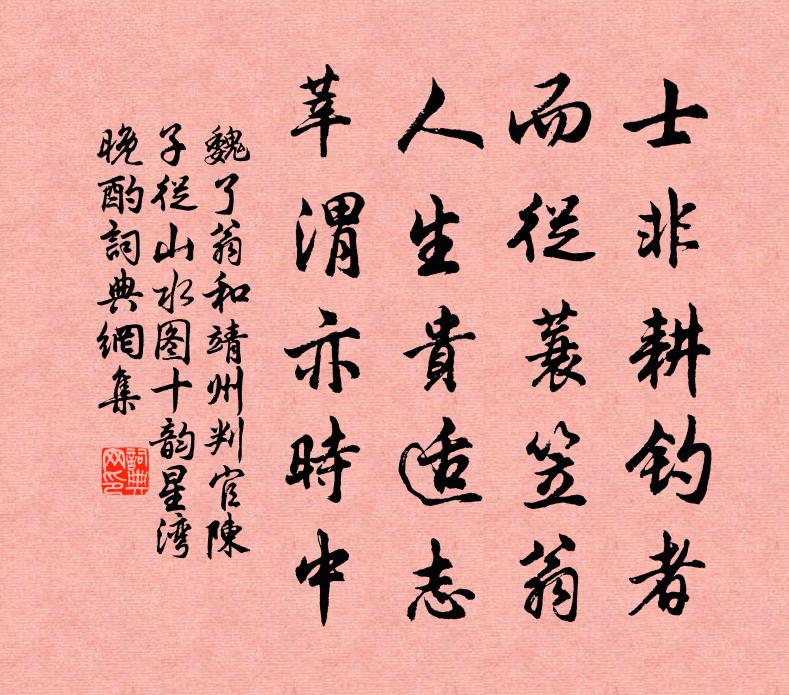 士非耕钓者
而從蓑笠翁
人生貴适志
莘渭亦時中
魏了翁和靖州判官陳
子從山水图十韵星湾
晚酌詞典網集
詞典网印